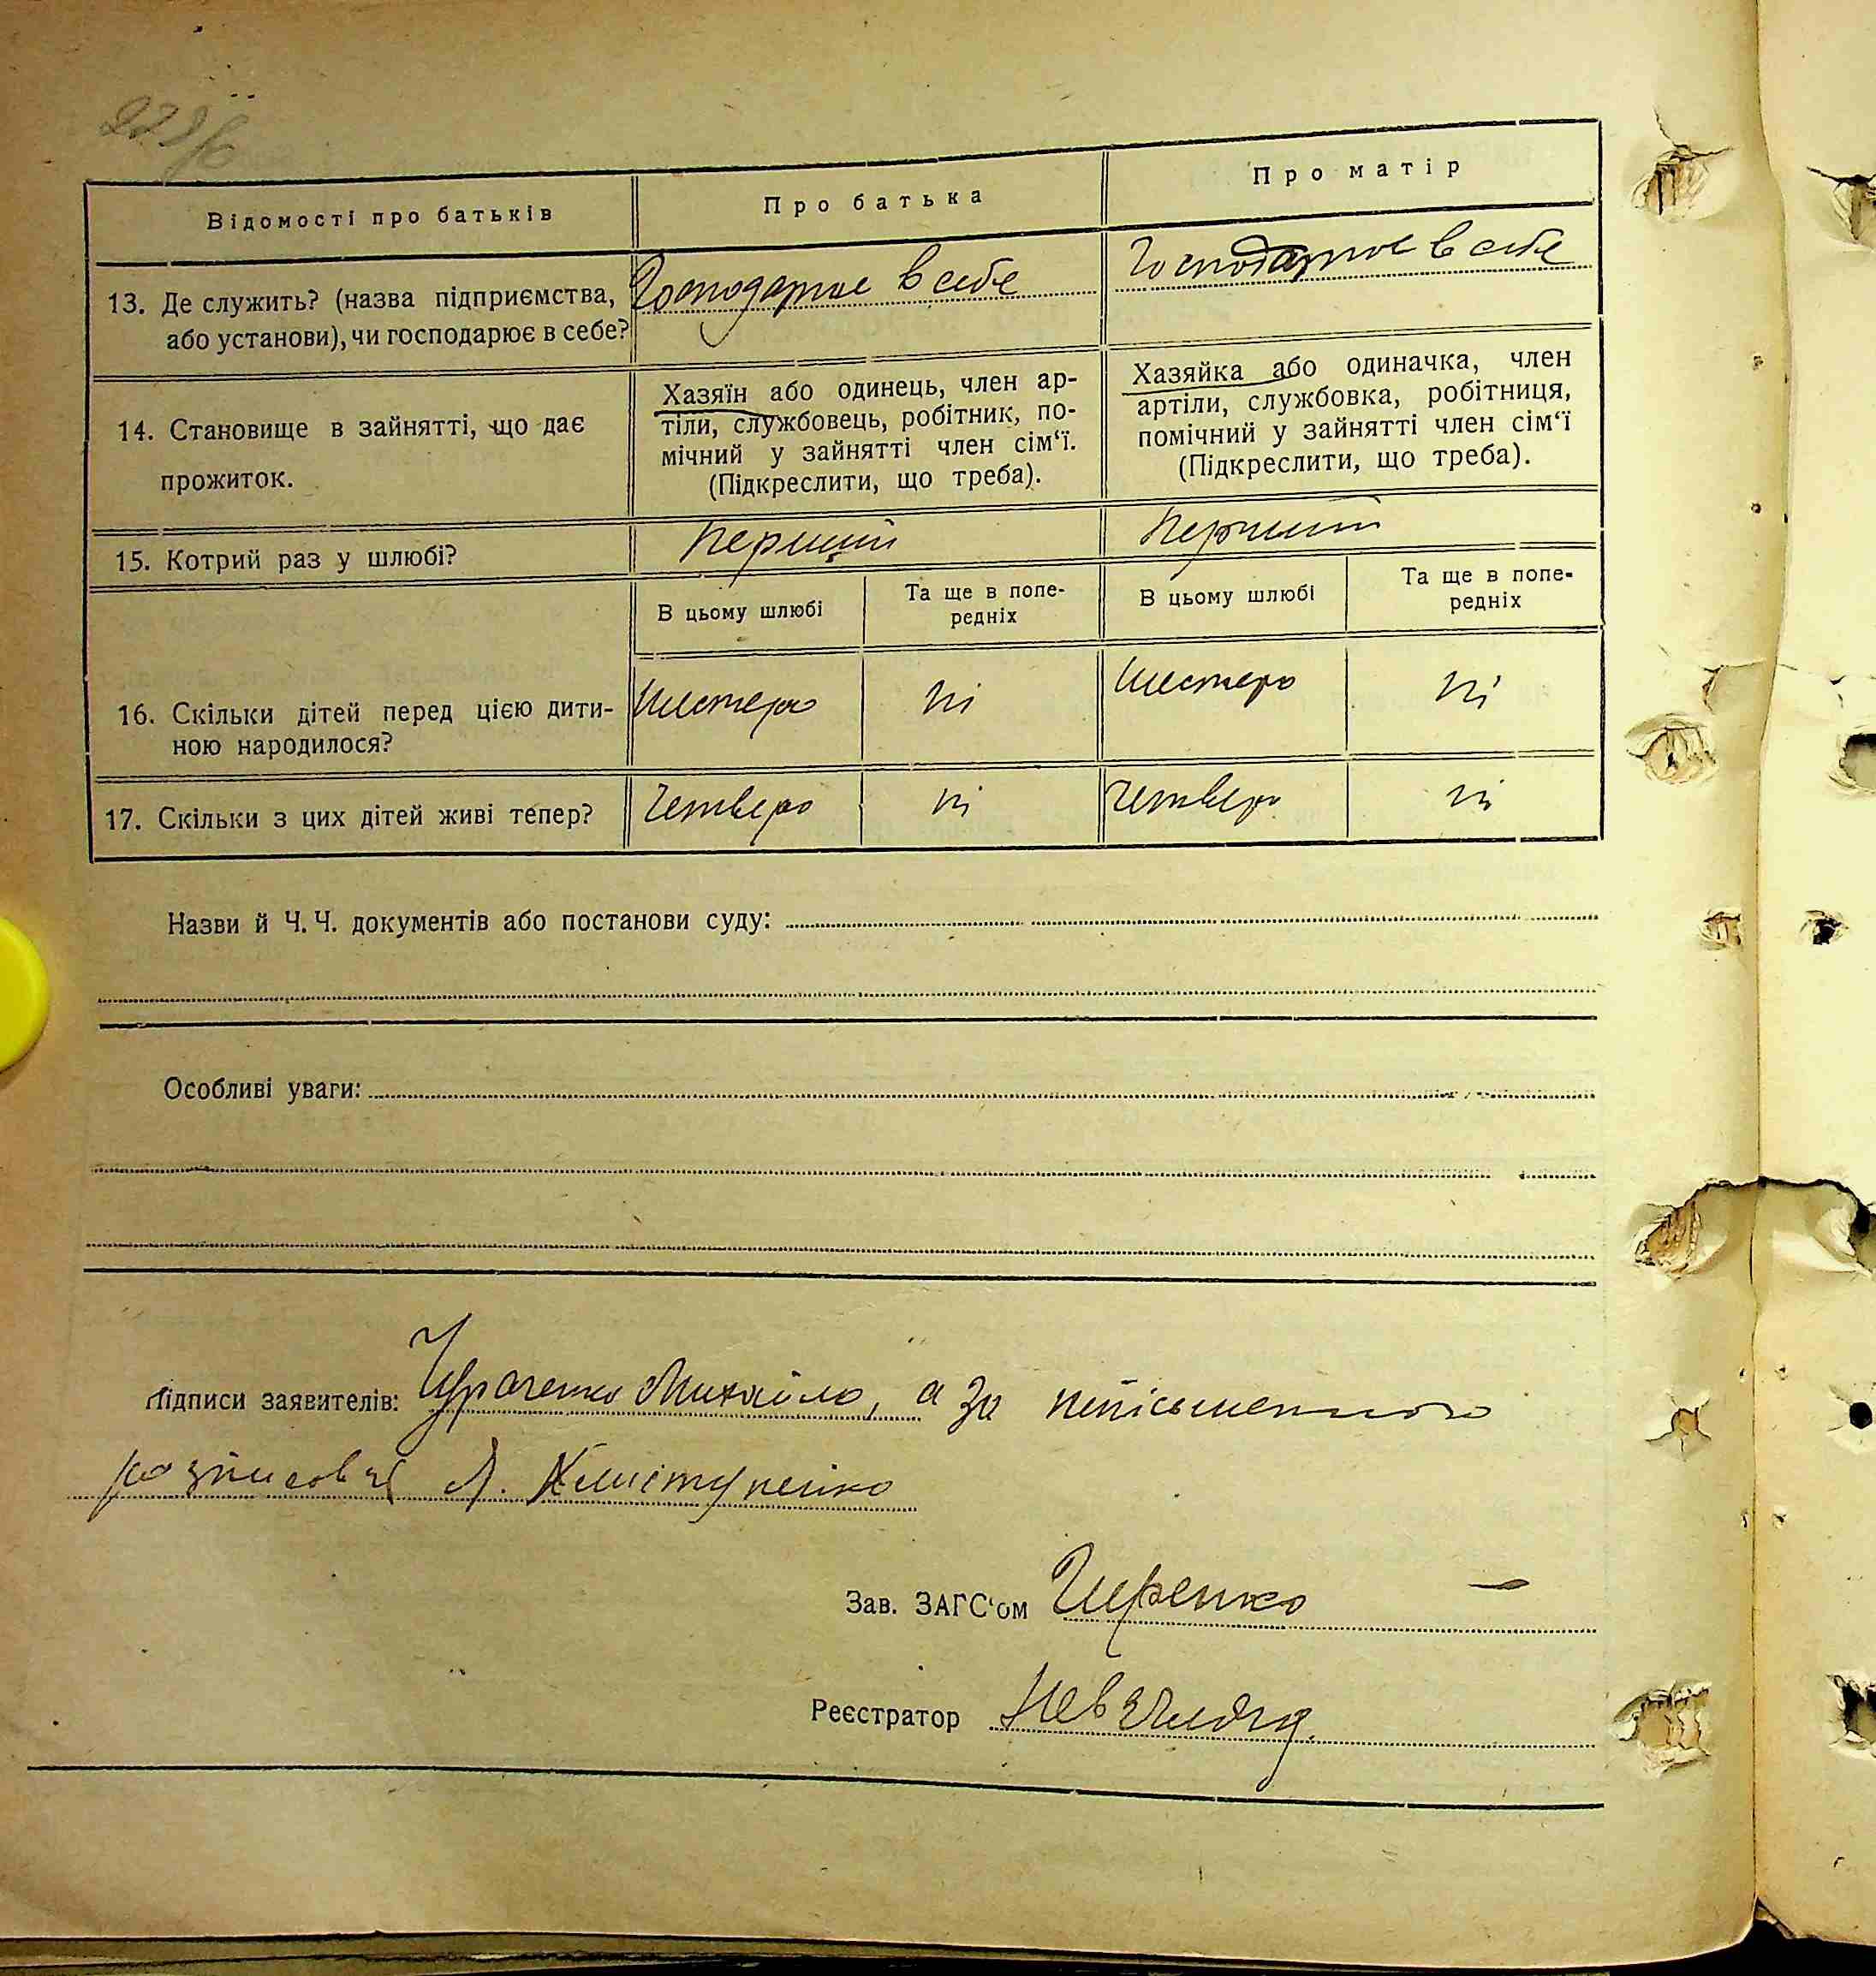 Відомості про батьків
Про батька
Про матір
13. Де служить? (назва підприємства,
або установи), чи господарює в себе?
Господарює в себе
Господарює в себе
14. Становище в зайнятті, що дає
прожиток.
Хазяїн або одинець, член ар-
тіли, службовець, робітник, по-
мічний у зайнятті член сім‘ї.
(Підкреслити, що треба).
Хазяйка або одиначка, член
артіли, службовка, робітниця,
помічний у зайнятті член сім‘ї
(Підкреслити, що треба).
15. Котрий раз у шлюбі?
Перший
Перший
В цьому шлюбі
Та ще в попе-
редніх
В цьому шлюбі
Та ще в попе-
редніх
16. Скільки дітей перед цією дити-
ною народилося?
Шестеро
ні
Шестеро
ні
17. Скільки з цих дітей живі тепер?
Четверо
ні
Четверо
ні
Назви й Ч. Ч. документів або постанови суду:
Особливі уваги:
Підписи заявителів: Михайло, а за
Зав. ЗАГС‘ом
Реєстратор